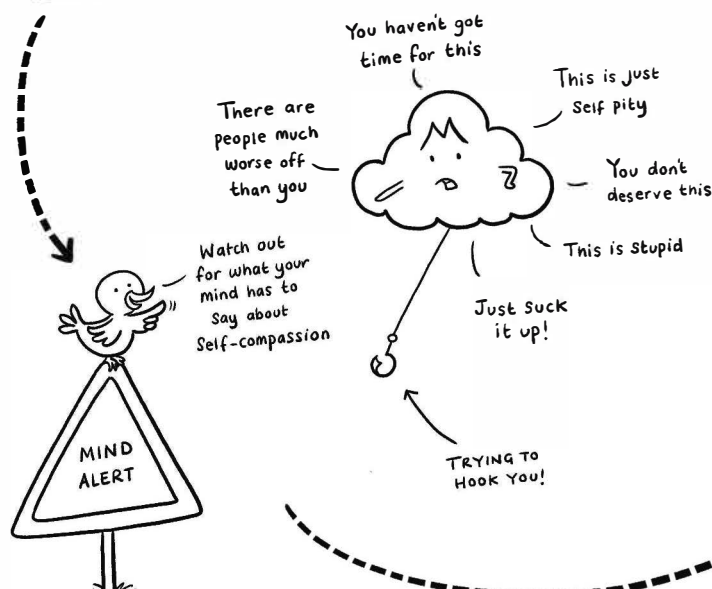 You haven't got
time for this
This is just
Self pity
There are
people much
worse off
than you
You don't
deserve this
This is stupid
Just suck
it up!
Watch out
for what your
mind has to
say about
Self-compassion
MIND
ALERT
TRYING TO
HOOK YOU!